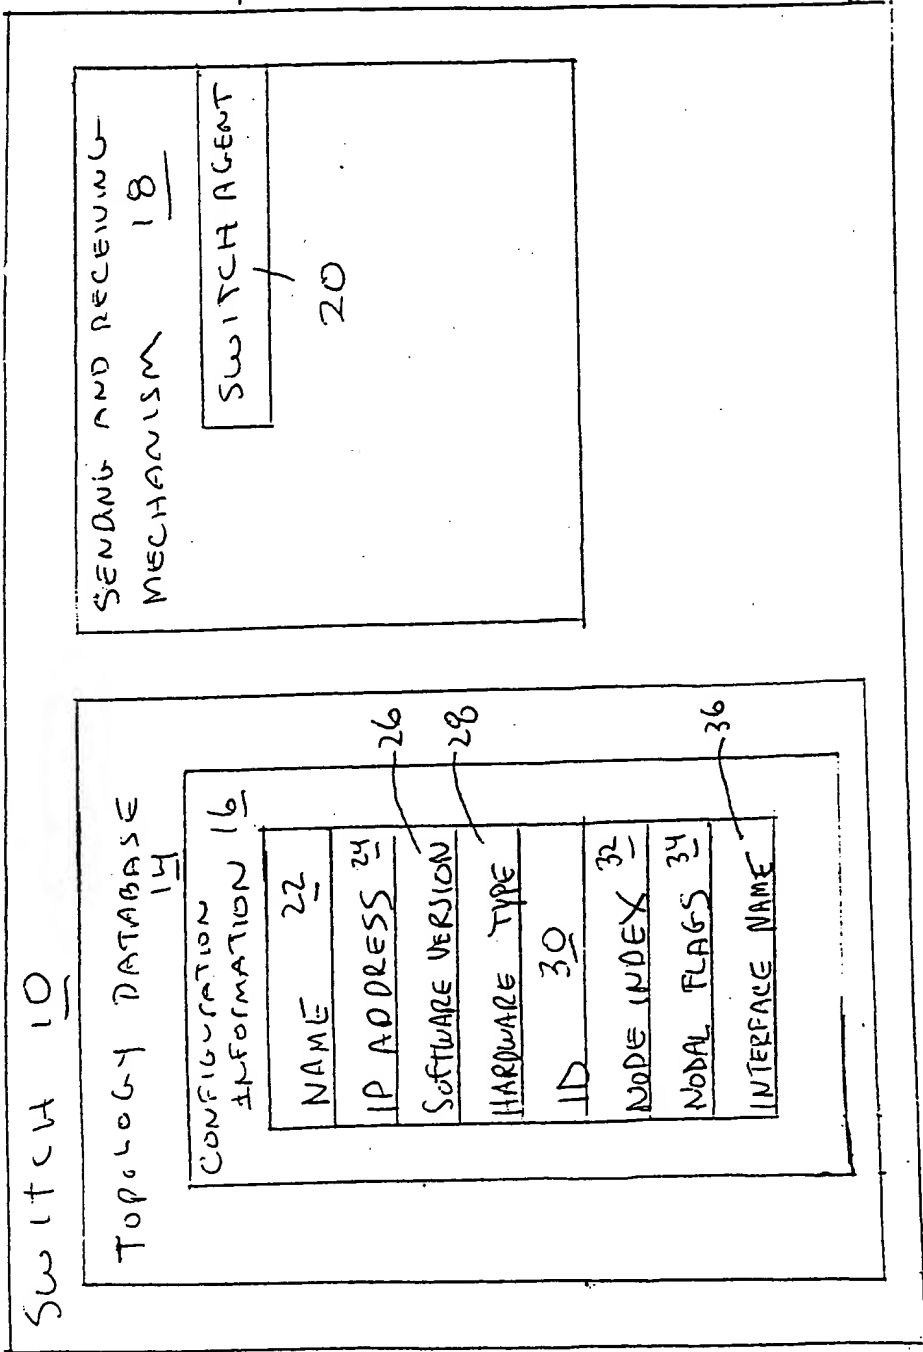 Switch 10
TOPOLOGY DATABASE
14
CONFIGURATION
INFORMATION 16
NAME 22
IP ADDRESS 24
SOFTWARE VERSION
26
HARDWARE TYPE
28
ID 30
NODE INDEX 32
NODAL FLAGS 34
INTERFACE NAME
36
SENDING AND RECEIVING
MECHANISM 18
SWITCH AGENT
20